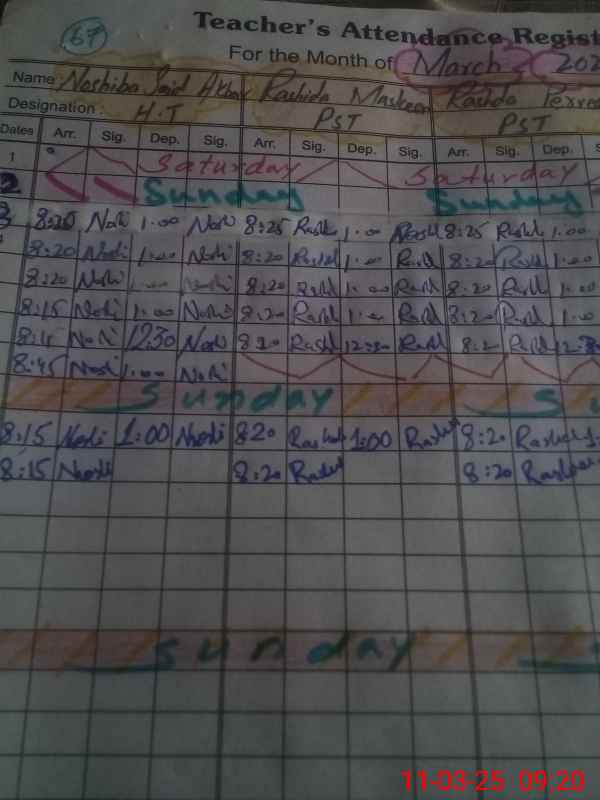 67
Teacher's Attendance Regist
For the Month of March 202
Name: Noshiba Said Akbar Rashida Maskeen Rashda Perve
Designation: H.T PST PST
Dates Arr. Sig. Dep. Sig. Arr. Sig. Dep. Sig. Arr. Sig. Dep. S
1 Saturday Saturday
2 Sunday Sunday
3 8:20 Noshi 1:00 Noshi 8:25 Rashd 1:00 Rashd 8:25 Rashd 1:00
8:20 Noshi 1:00 Noshi 8:20 Rashd 1:00 Rashd 8:20 Rashd 1:00
8:20 Noshi 1:00 Noshi 8:20 Rashd 1:00 Rashd 8:20 Rashd 1:00
8:15 Noshi 1:00 Noshi 8:20 Rashd 1:00 Rashd 8:20 Rashd 1:00
8:15 Noshi 12:30 Noshi 8:20 Rashd 12:30 Rashd 8:20 Rashd 12:3
8:45 Noshi 1:00 Noshi
Sunday Su
8:15 Noshi 1:00 Noshi 820 Rashd 1:00 Rashd 8:20 Rashd 1:
8:15 Noshi 8:20 Rashd 8:20 Rashd
Sunday
11-03-25 09:20